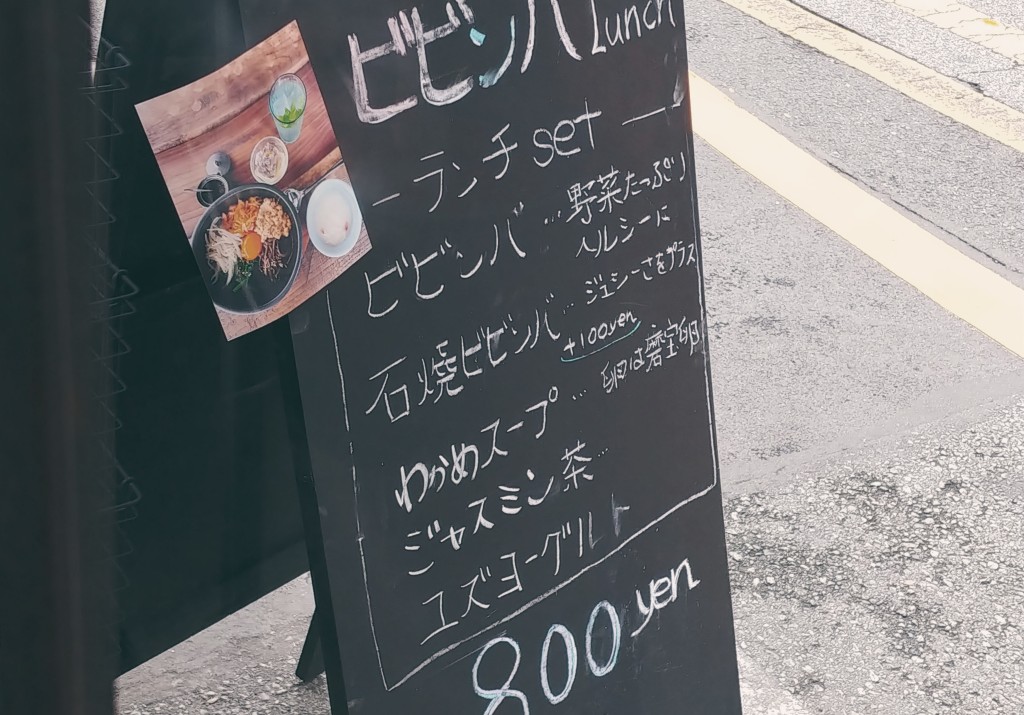 ビビンバ Lunch
ーランチset ー
ビビンバ … 野菜たっぷり
ヘルシーに
石焼ビビンバ … ジューシーさをプラス
+100yen
わかめスープ … 卵は磨宝卵
ジャスミン茶 …
ユズヨーグルト
800yen